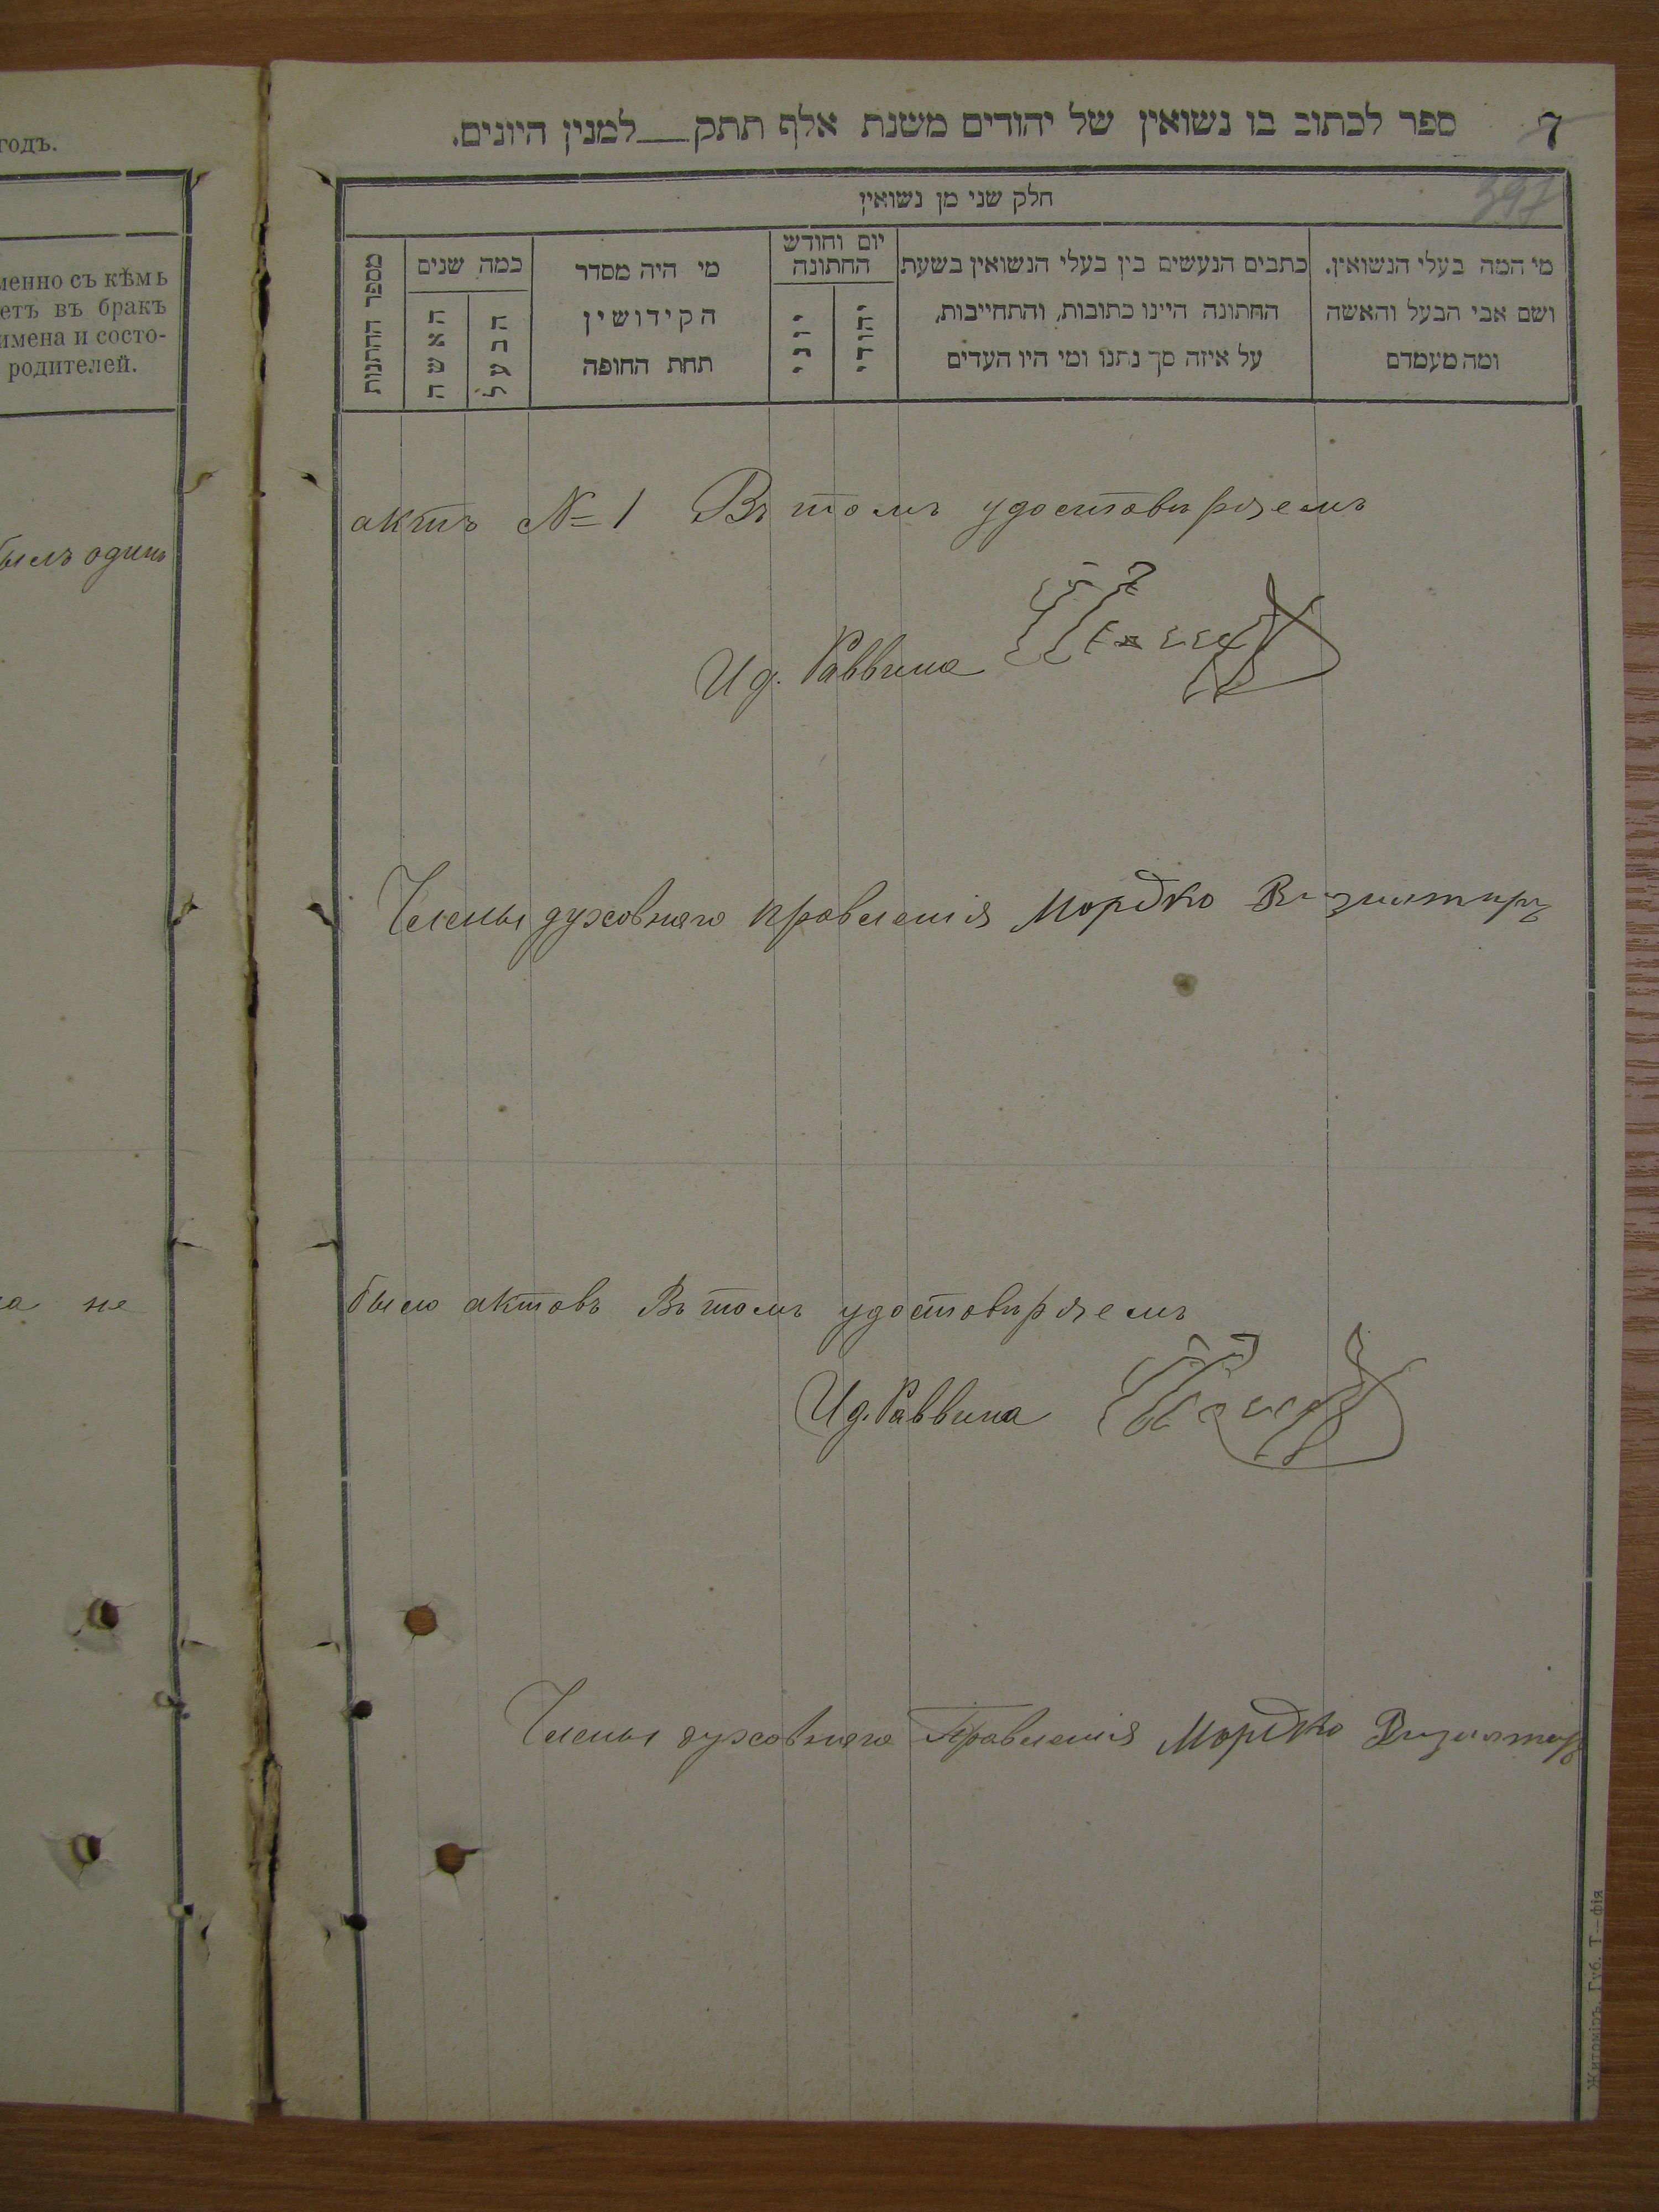 годъ.
менно съ кѣмъ
етъ въ бракъ
имена и состо-
родителей.
былъ одинъ
не
ספר לכתוב בו נשואין של יהודים משנת אלף תתק__למנין היונים.
7
397
חלק שני מן נשואין
מי המה בעלי הנשואין.
ושם אבי הבעל והאשה
ומה מעמדם
כתבים הנעשים בין בעלי הנשואין בשעת
החתונה היינו כתובות, והתחייבות,
על איזה סך נתנו ומי היו העדים
יום וחודש
החתונה
יהודי
יוני
מי היה מסדר
הקידושין
תחת החופה
כמה שנים
הבעל
האשה
מספר החתונות
актъ № 1 Въ томъ удостовѣряемъ
И д. Раввина
Члены духовнаго правленія Мордко
было актовъ Въ томъ удостовѣряемъ
И д. Раввина
Члены духовнаго Правленія Мордко
Житоміръ. Губ. Т—фія